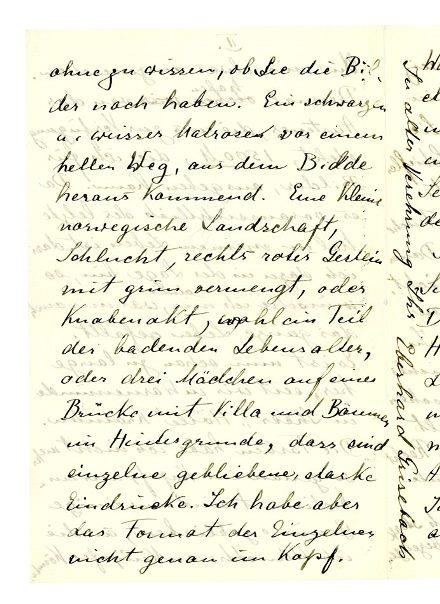 II.
ohne zu wissen, ob Sie die Bil-
der noch haben. Ein schwarzer
u. weisser Matrosen vor einem
hellen Weg, aus dem Bilde
heraus kommend. Eine kleine
norwegische Landschaft,
Schlucht, rechts rotes Gestein
mit grün vermengt, oder
Knabenakt, wohl ein Teil
der badenden Lebensalter,
oder drei Mädchen auf einer
Brücke mit Villa und Bäumen
im Hintergrunde, dass sind
einzelne gebliebene, starke
Eindrücke. Ich habe aber
das Format der Einzelnen
nicht genau im Kopf.
In alter Verehrung Ihr Eberhard Grisebach